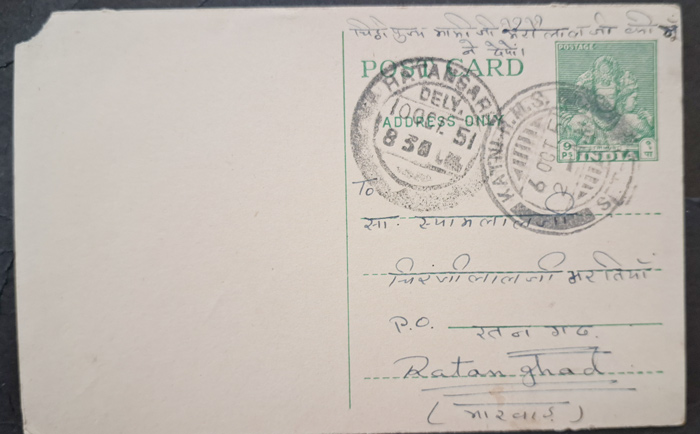 चिठी पुज्य मामीजी
ने देवें।
POST CARD
POSTAGE
ADDRESS ONLY
9 PS
INDIA
RATANGARH
DELY.
10 OCT. 51
8 30
KATNI R.M.S.
6 OCT 5
To
सा. स्यामलाल
चिरंजीलालजी भरतियाँ
P.O. रतनगढ.
Ratanghad
(मारवाड़)